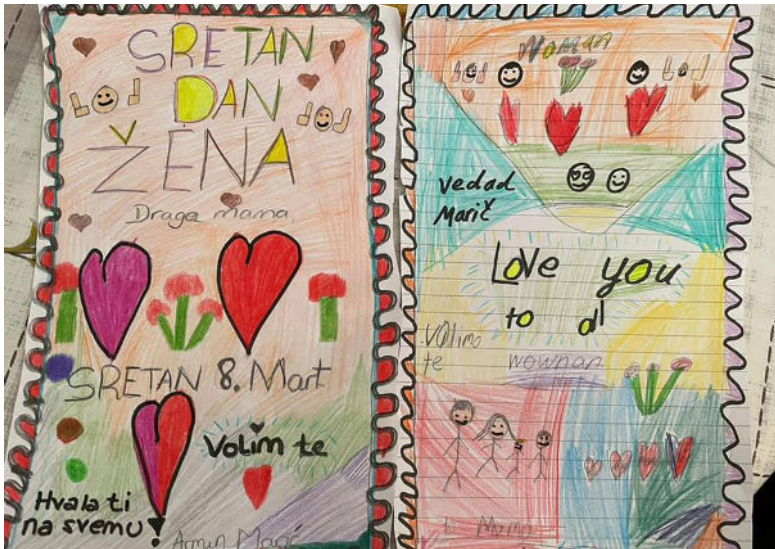 SRETAN
DAN
ŽENA
Draga mama,
SRETAN 8. Mart
Volim te
Hvala ti
na svemu!
Armin Marić
Woman
Vedad
Marič
Love you
to all
Volimo
te wownan